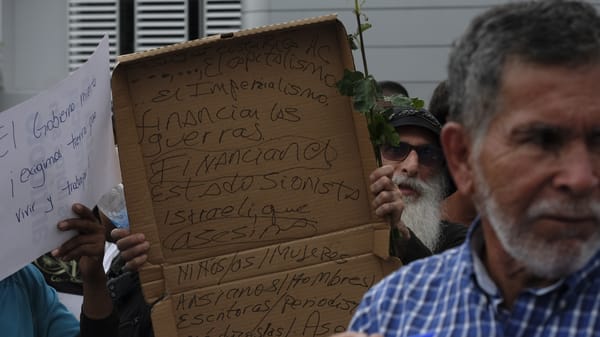 El Gobierno mi
¡exigimos tierra p
vivir y trabaja
... El capitalismo
El Imperialismo
FINANCIAN LAS
guerras
FINANCIAN el
Estado Sionista
israeli que
asesina
NIÑOS/AS/MUJERES
ANSIANOS/Hombres
Escritoras/periodistas